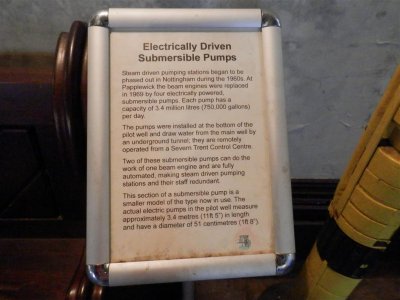 Electrically Driven
Submersible Pumps
Steam driven pumping stations began to be
phased out in Nottingham during the 1960s. At
Papplewick the beam engines were replaced
in 1969 by four electrically powered,
submersible pumps. Each pump has a
capacity of 3.4 million litres (750,000 gallons)
per day.
The pumps were installed at the bottom of the
pilot well and draw water from the main well by
an underground tunnel; they are remotely
operated from a Severn Trent Control Centre.
Two of these submersible pumps can do the
work of one beam engine and are fully
automated, making steam driven pumping
stations and their staff redundant.
This section of a submersible pump is a
smaller model of the type now in use. The
actual electric pumps in the pilot well measure
approximately 3.4 metres (11ft 5") in length
and have a diameter of 51 centimetres (1ft 8").